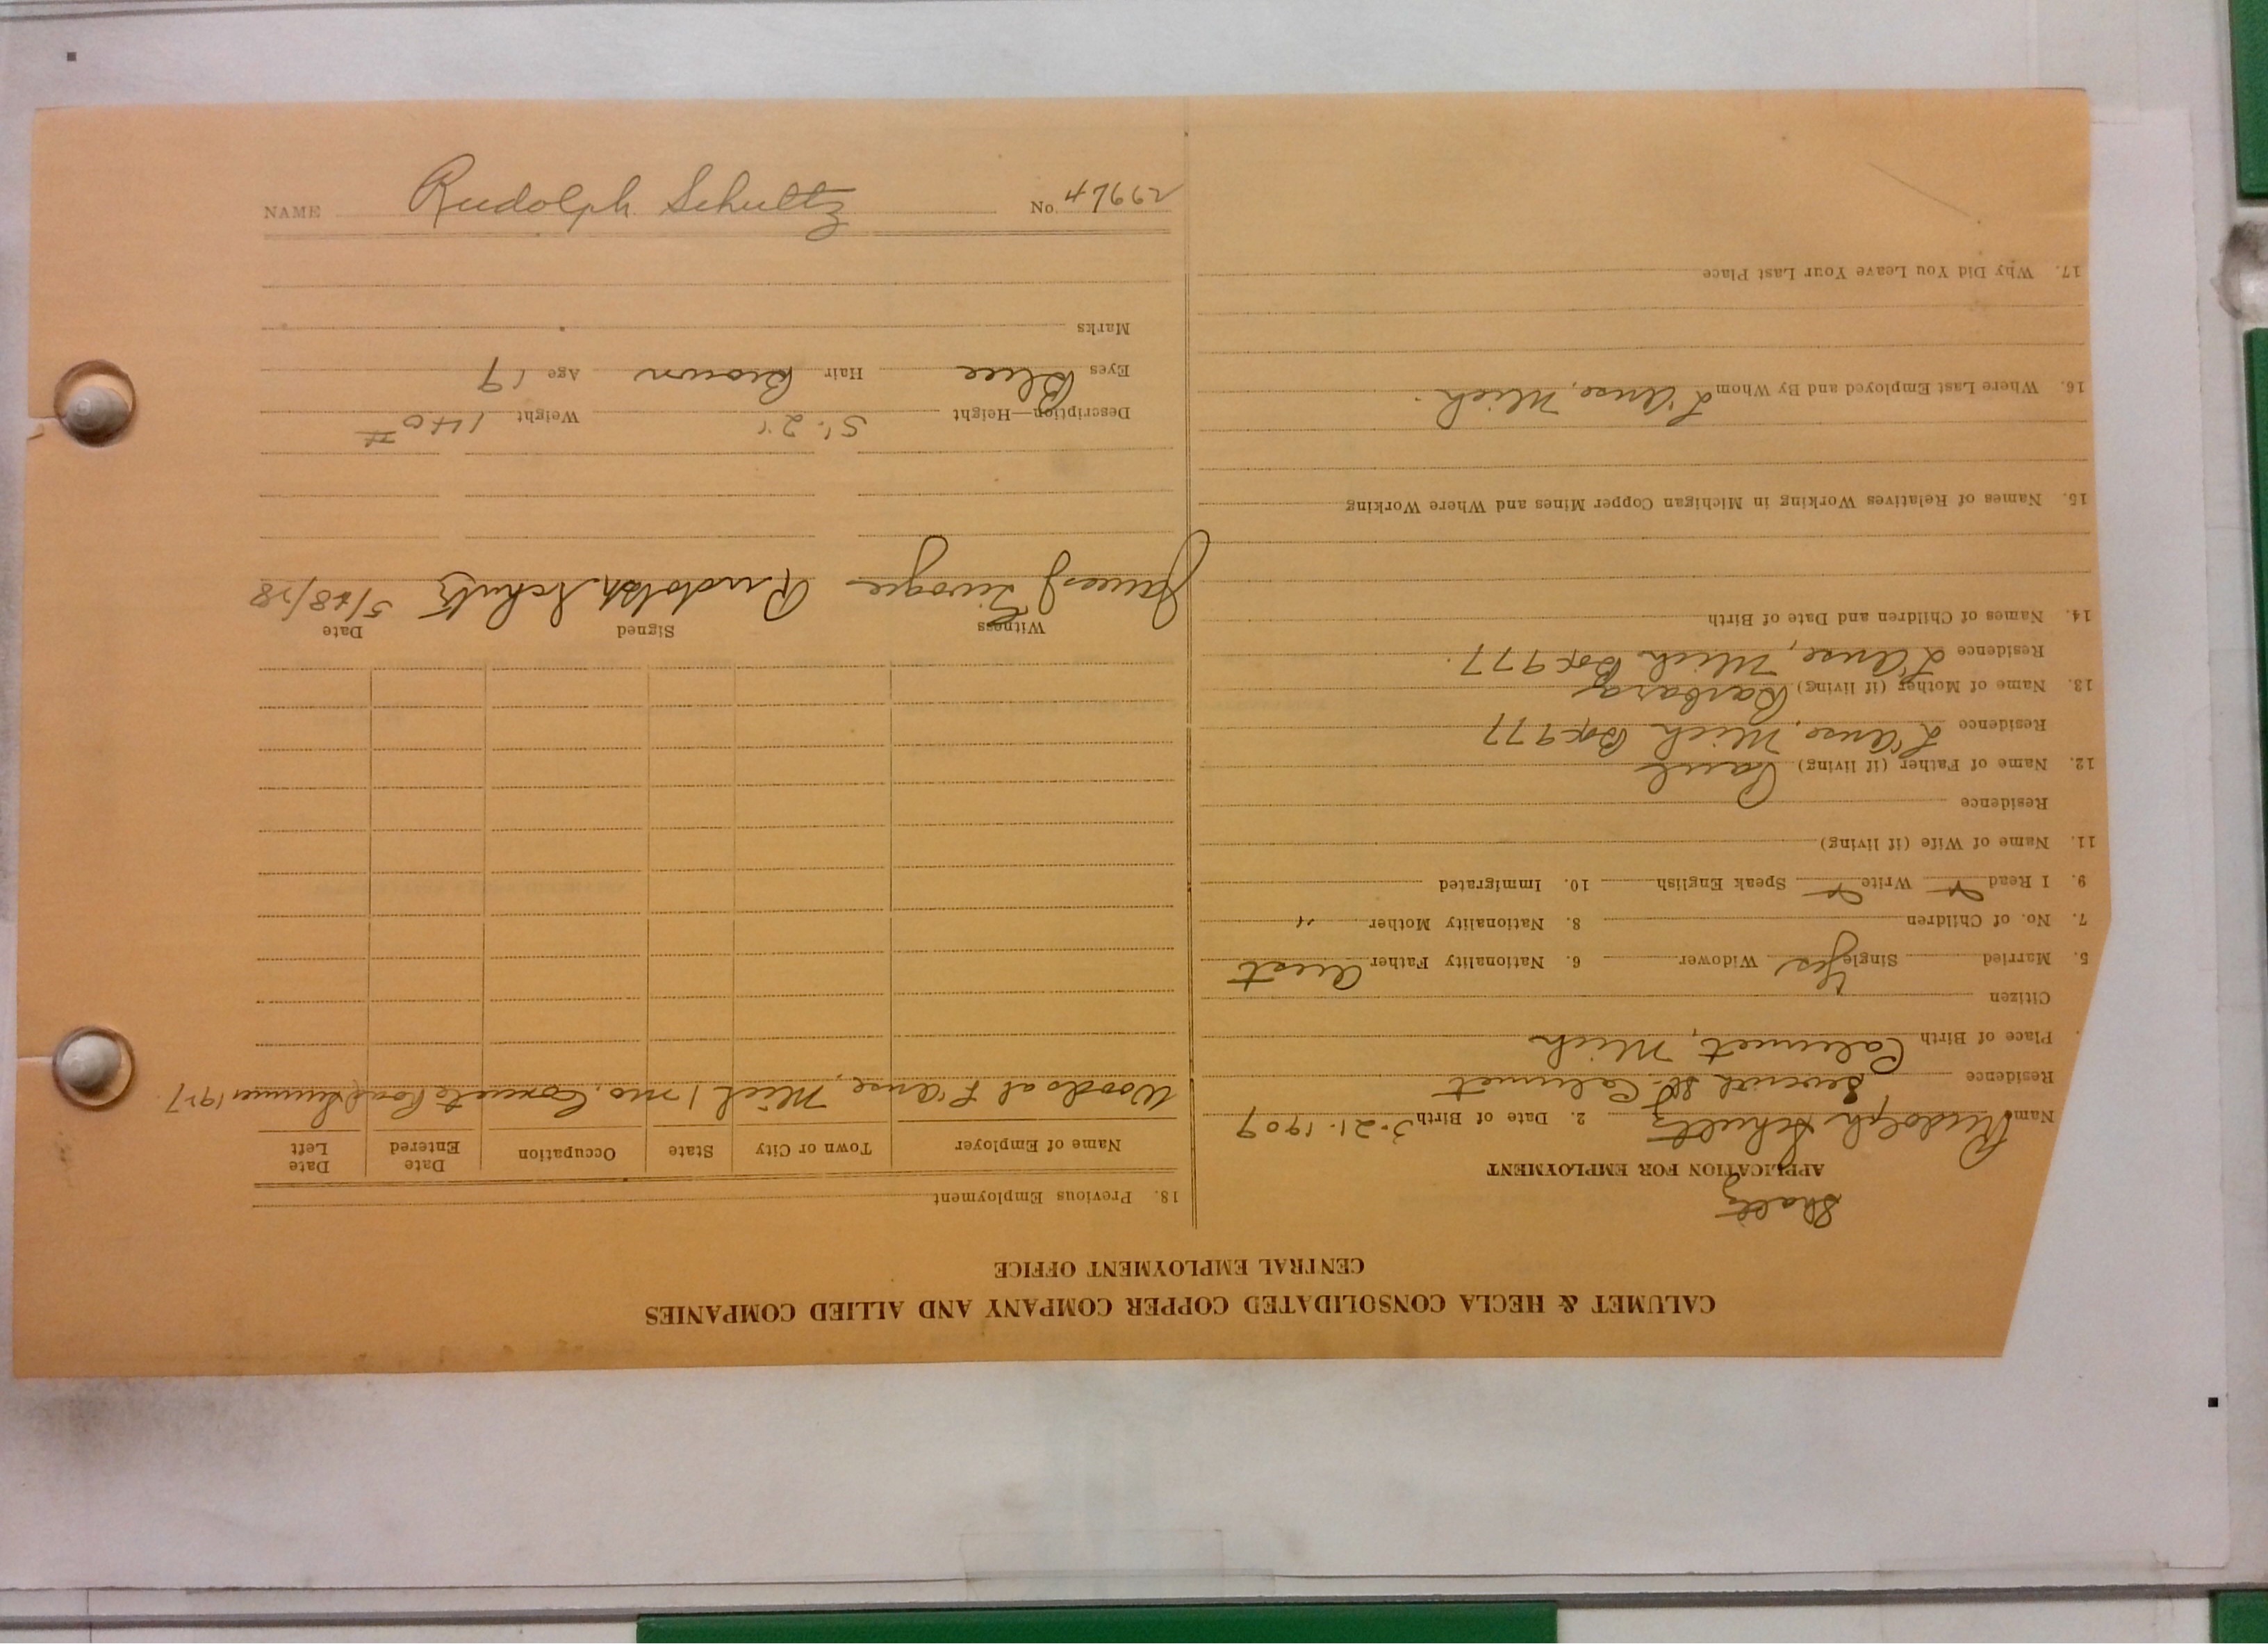 CALUMET & HECLA CONSOLIDATED COPPER COMPANY AND ALLIED COMPANIES
CENTRAL EMPLOYMENT OFFICE
APPLICATION FOR EMPLOYMENT
Name Rudolph Schultz 2. Date of Birth 3-21-1909
Residence St. Calumet
Place of Birth Calumet, Mich
Citizen
5. Married Single Yes Widower 6. Nationality Father Aust
7. No. of Children 8. Nationality Mother "
9. I Read Write Speak English 10. Immigrated
11. Name of Wife (if living)
Residence
12. Name of Father (if living) Paul
Residence L'Anse, Mich Box 977
13. Name of Mother (if living) Barbara
Residence L'Anse, Mich Box 977
14. Names of Children and Date of Birth
15. Names of Relatives Working in Michigan Copper Mines and Where Working
16. Where Last Employed and By Whom L'Anse, Mich.
17. Why Did You Leave Your Last Place
18. Previous Employment
Name of Employer Town or City State Occupation Date Entered Date Left
Woods at L'Anse, Mich 1 mo. Concrete Road Summer 1927
Witness Signed Date
James Rudolph Schultz 5/18/28
Description—Height 5'-2" Weight 140 #
Eyes Blue Hair Brown Age 19
Marks
NAME Rudolph Schultz No. 47662